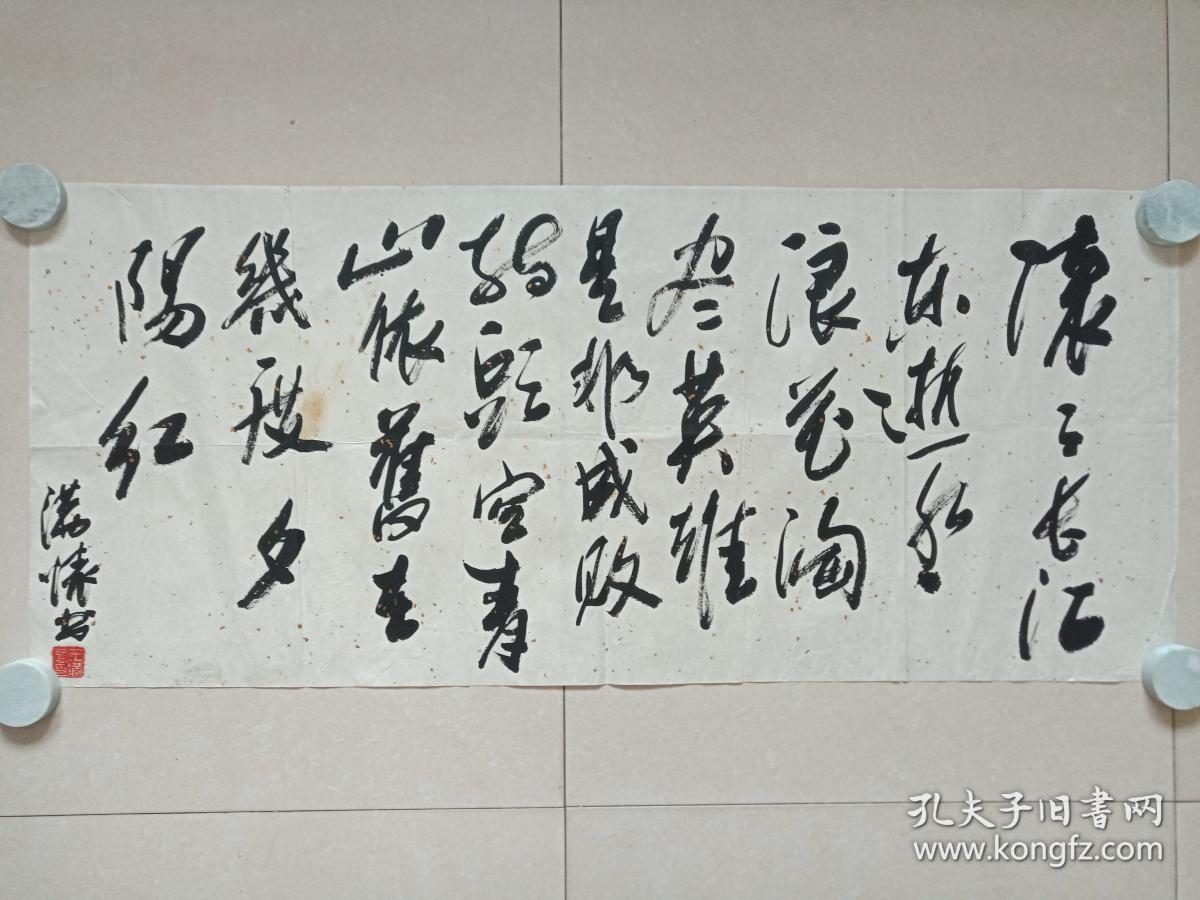 滚〻长江
东逝水
浪花淘
尽英雄
是非成败
转头空青
山依舊在
幾度夕
陽红
满书
孔夫子旧書网
www.kongfz.com